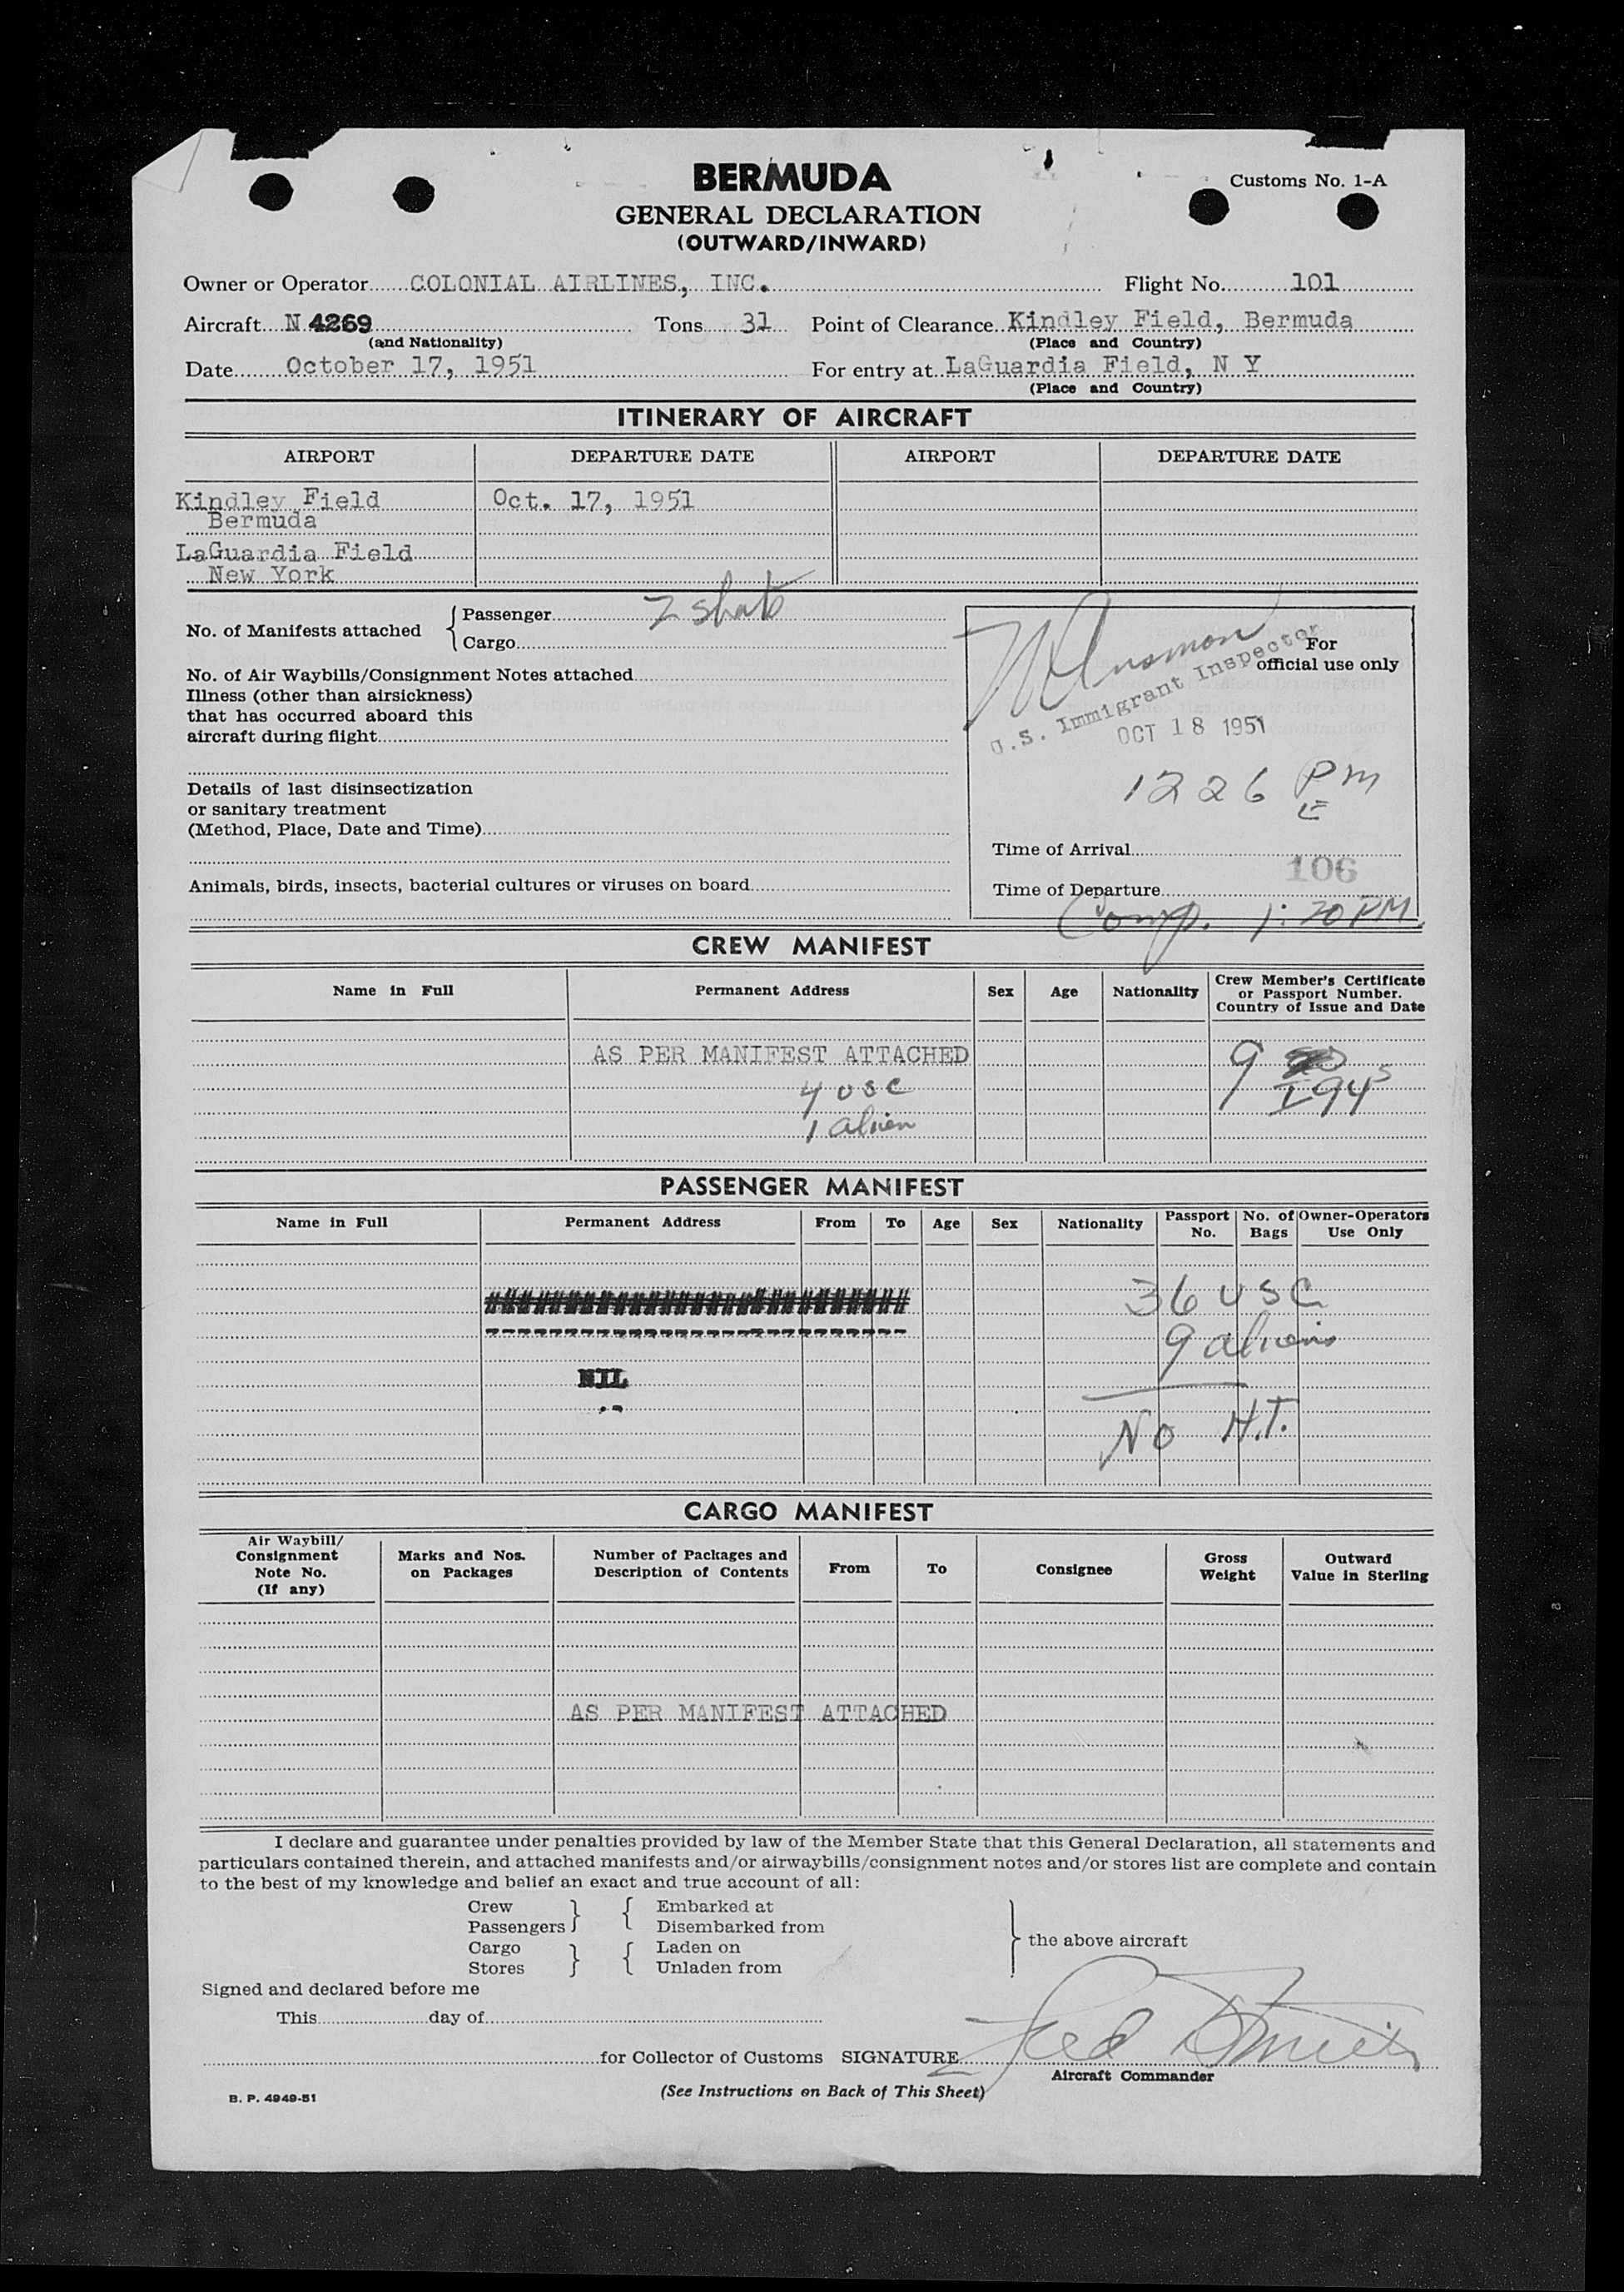 BERMUDA
Customs No. 1-A
GENERAL DECLARATION
(OUTWARD/INWARD)
Owner or Operator COLONIAL AIRLINES, INC. Flight No. 101
Aircraft N 4269 Tons 31 Point of Clearance Kindley Field, Bermuda
(and Nationality) (Place and Country)
Date October 17, 1951 For entry at LaGuardia Field, N Y
(Place and Country)
ITINERARY OF AIRCRAFT
AIRPORT DEPARTURE DATE AIRPORT DEPARTURE DATE
Kindley Field Oct. 17, 1951
Bermuda
LaGuardia Field
New York
No. of Manifests attached
Passenger 2
Cargo
No. of Air Waybills/Consignment Notes attached
Illness (other than airsickness)
that has occurred aboard this
aircraft during flight
Details of last disinsectization
or sanitary treatment
(Method, Place, Date and Time)
Animals, birds, insects, bacterial cultures or viruses on board
For
official use only
U.S. Immigrant Inspector
OCT 18 1951
1226 PM
E
Time of Arrival
106
Time of Departure
Comp. 1:20 PM
CREW MANIFEST
Name in Full Permanent Address Sex Age Nationality Crew Member's Certificate
or Passport Number.
Country of Issue and Date
AS PER MANIFEST ATTACHED
4 USC
1 alien
9
I94s
PASSENGER MANIFEST
Name in Full Permanent Address From To Age Sex Nationality Passport No. No. of Bags Owner-Operators Use Only
36 USC
9 aliens
NIL
No H.T.
CARGO MANIFEST
Air Waybill/
Consignment
Note No.
(If any)
Marks and Nos.
on Packages
Number of Packages and
Description of Contents
From To Consignee
Gross
Weight
Outward
Value in Sterling
AS PER MANIFEST ATTACHED
I declare and guarantee under penalties provided by law of the Member State that this General Declaration, all statements and
particulars contained therein, and attached manifests and/or airwaybills/consignment notes and/or stores list are complete and contain
to the best of my knowledge and belief an exact and true account of all:
Crew Embarked at
Passengers Disembarked from
Cargo Laden on
Stores Unladen from
the above aircraft
Signed and declared before me
This day of
for Collector of Customs SIGNATURE
Aircraft Commander
(See Instructions on Back of This Sheet)
B. P. 4949-51